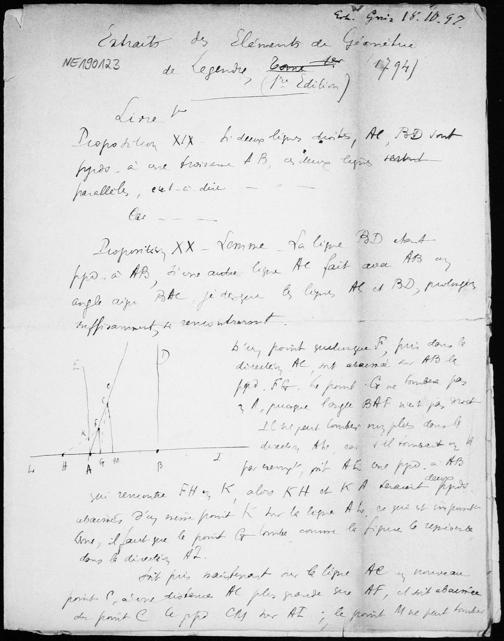 Ed. Gris 18.10.97
Extraits des Eléments de Géométrie
NE190123
de Legendre, Tome 1er 1794)
(1re Edition)
Livre 1er
Proposition XIX - Si deux lignes droites, AC, BD sont
ppds. à une troisième AB, ces deux lignes seront
parallèles, c'est-à-dire - - -
Car - - -
Proposition XX - Lemme - La ligne BD étant
ppd. à AB, si une autre ligne AC fait avec AB un
angle aigu BAC je dis que les lignes AC et BD, prolongées
suffisamment, se rencontreront.
D'un point quelconque F, pris dans la
direction AC, soit abaissée sur AB la
ppd. FG. Le point G ne tombera pas
en A, puisque l'angle BAF n'est pas droit
Il ne peut tomber non plus dans la
direction AL, car s'il tombait en H
par exemple, soit AE une ppd. à AB
qui rencontre FH en K, alors KH et KA seraient deux ppds
abaissées d'un même point K sur la ligne AL, ce qui est impossible
Donc, il faut que le point G tombe, comme la figure le représente
dans la direction AI.
Soit pris maintenant sur la ligne AC un nouveau
point C, à une distance AC plus grande que AF, et soit abaissée
du point C la ppd CM sur AI ; le point M ne peut tomber
E
D
C
F
K
L
H
A
G
M
B
I